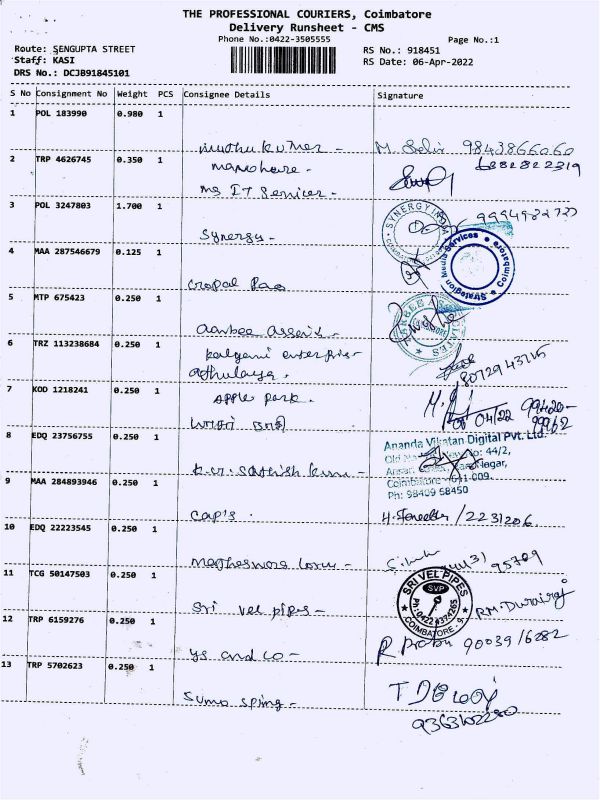 THE PROFESSIONAL COURIERS, Coimbatore
Delivery Runsheet - CMS
Phone No.:0422-3505555
Page No.:1
Route: SENGUPTA STREET
RS No.: 918451
Staff: KASI
RS Date: 06-Apr-2022
DRS No.: DCJB91845101
S No Consignment No Weight PCS Consignee Details Signature
1 POL 183990 0.980 1
muthu kumar - M. Selvi 9843866060
2 TRP 4626745 0.350 1
6382822319
ms IT Services -
3 POL 3247803 1.700 1
SYNERGY
Synergy -
4 MAA 287546679 0.125 1
Media Services
Coimbatore
Gopal Rao
5 MTP 675423 0.250 1
Aanbee Associ -
6 TRZ 113238684 0.250 1
kalyani enterpris -
athulaya -
8072943715
7 KOD 1218241 0.250 1
apple park -
04/22
8 EDQ 23756755 0.250 1
Ananda Vikatan Digital Pvt. Ltd.
No: 44/2,
Nagar,
Coimbatore - 641-009.
Ph: 98409 58450
Sathish kumar -
9 MAA 284893946 0.250 1
Cap's . / 2231206
10 EDQ 22223545 0.250 1
11 TCG 50147503 0.250 1
SRI VEL PIPES
SVP
Ph: 0422 4374265
COIMBATORE - 9
Sri vel pipes - RM. Durairaj
12 TRP 6159276 0.250 1
ys and co - R. Prabu 90039 16282
13 TRP 5702623 0.250 1
Sumo sping -